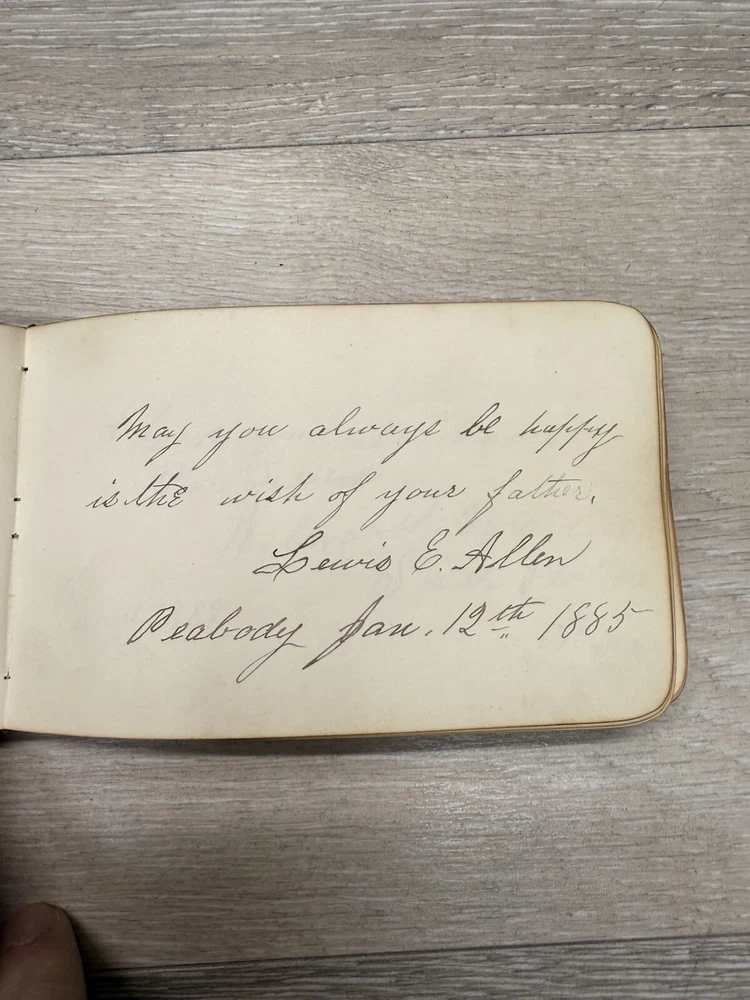 May you always be happy
is the wish of your father.
Lewis E. Allen
Peabody Jan. 12th 1885